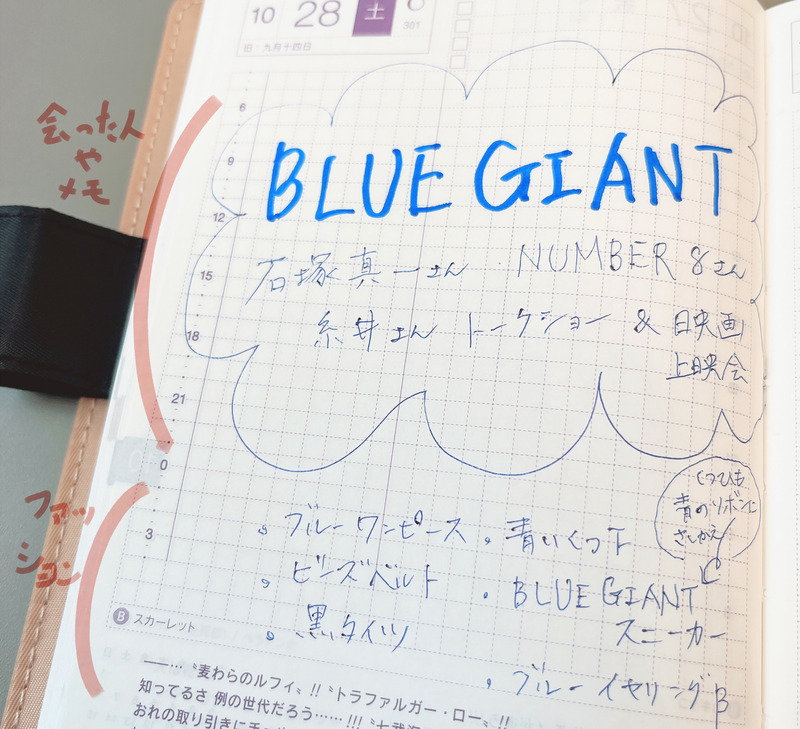 10 28 土
301
旧 九月十四日
会った人
や
メモ
6
9
12
15
18
21
0
3
BLUE GIANT
石塚真一さん ・ NUMBER 8さん
糸井さん トークショー & 映画
上映会
ファッ
ション
くつひも
青のリボンに
さしかえ
・ブルーワンピース
・ビーズベルト
・黒タイツ
・青いくつ下
・BLUE GIANT
スニーカー
・ブルーイヤリング
B スカーレット
――…〝麦わらのルフィ〟!!〝トラファルガー・ロー〟!!
知ってるさ 例の世代だろう……!!!
おれの取り引きに